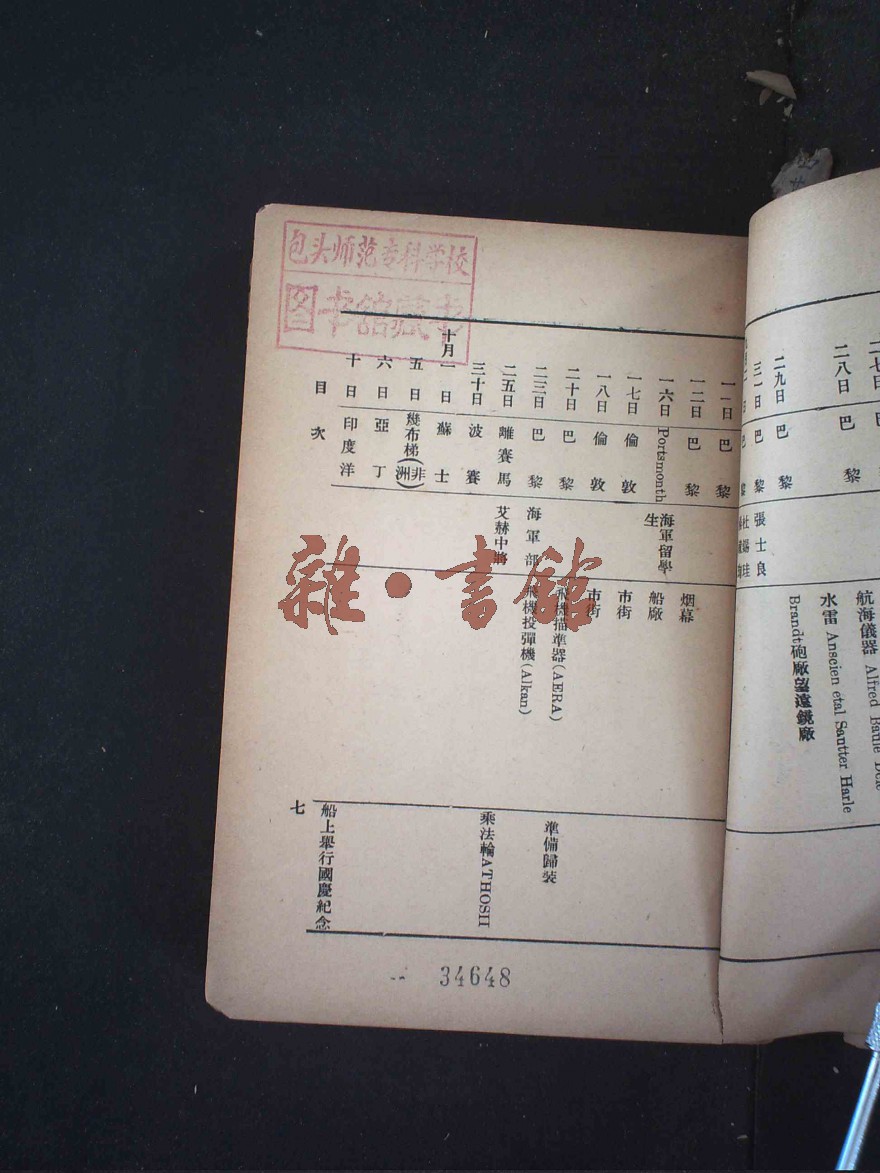 包头师范专科学校
图书馆藏书
二七日
二八日 巴黎
二九日 巴黎
三一日 巴黎 張士良
杜錫珪
航海儀器 Alfred
水雷 Anscien etal Sautter Harle
Brandt砲廠望遠鏡廠
一一日 巴黎
一二日 巴黎 烟幕
一六日 Portsmonth 海軍留學生 船廠
一七日 倫敦 市街
一八日 倫敦 市街
二十日 巴黎 飛機描準器(AERA) 準備歸裝
二三日 巴黎 海軍部 飛機投彈機(Alkan)
二五日 離賽馬 艾赫中將 乘法輪ATHOSII
三十日 波賽
十月一日 蘇士
五日 幾布梯(非洲)
六日 亞丁
十日 印度洋 船上舉行國慶紀念
目次
七
34648
雜·書館